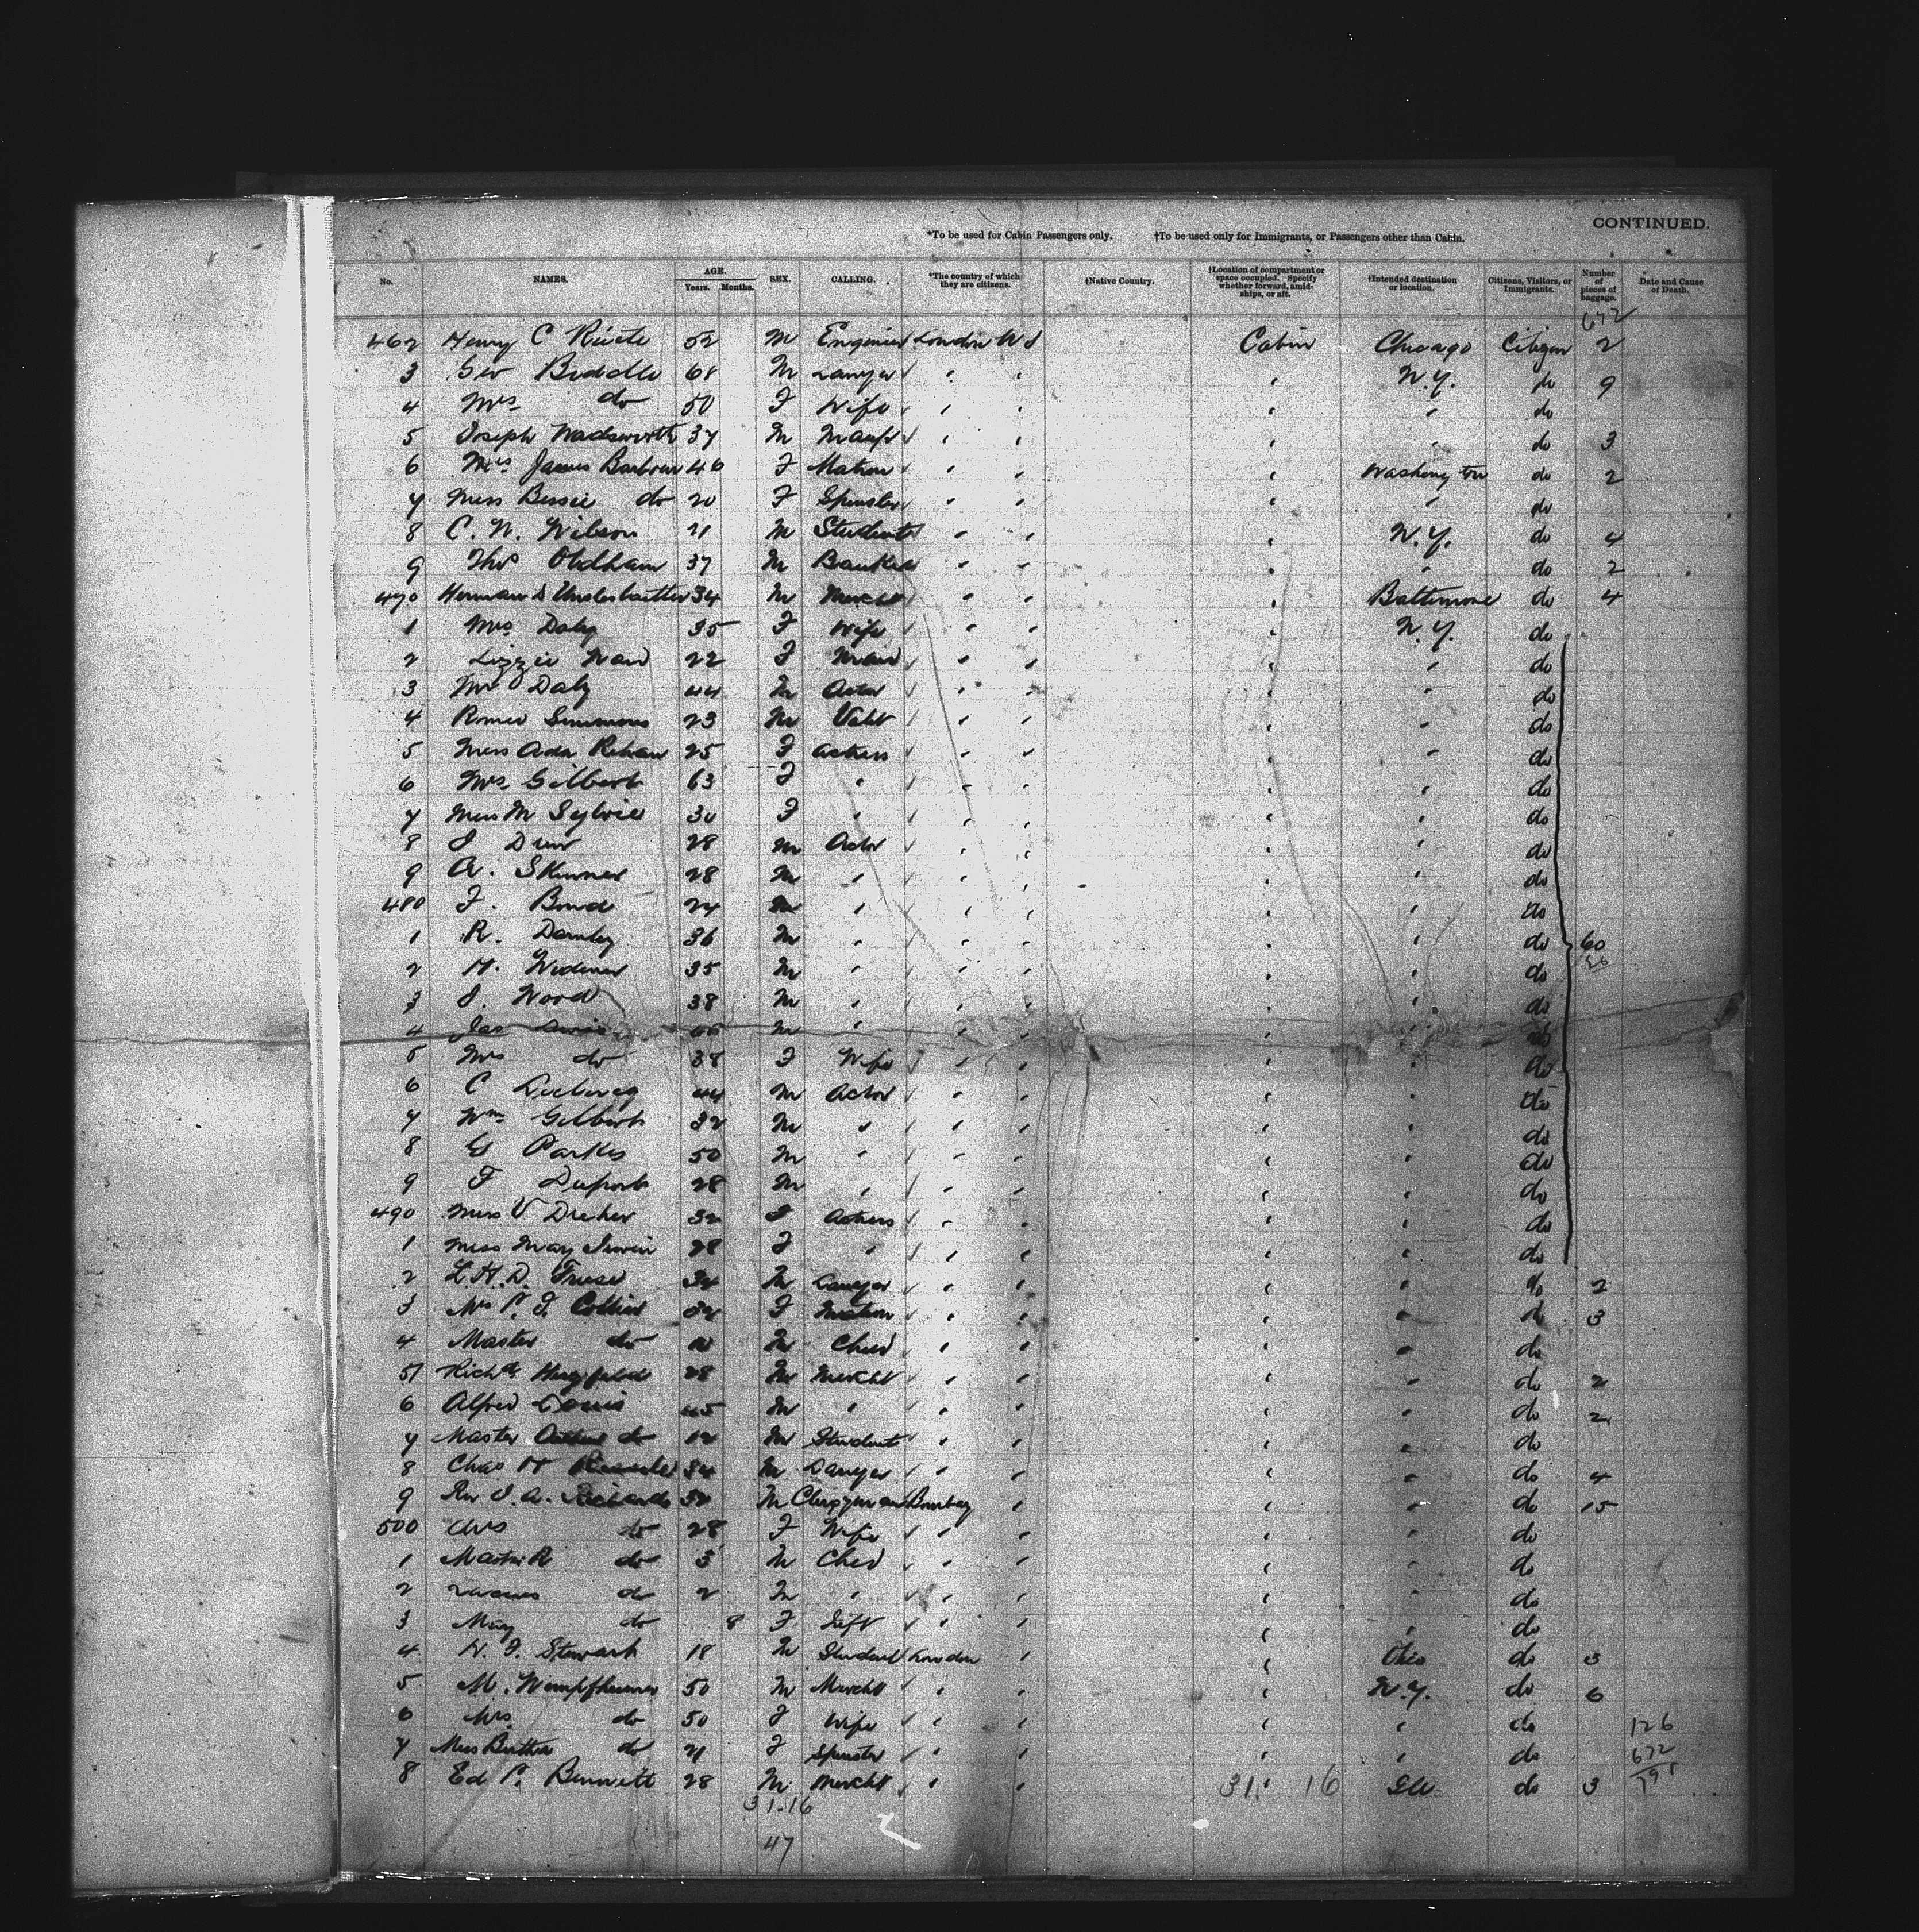 CONTINUED.
*To be used for Cabin Passengers only. †To be used only for Immigrants, or Passengers other than Cabin.
No. NAMES. AGE. Years. Months. SEX. CALLING. *The country of which they are citizens. †Native Country. †Location of compartment or space occupied. Specify whether forward, amidships, or aft. †Intended destination or location. Citizens, Visitors, or Immigrants. Number of pieces of baggage. Date and Cause of Death.
672
462 Henry C 52 M Engineer London Cabin Chicago Citizen 2
3 Geo Biddle 68 M Lawyer " " " N.Y. do 9
4 Mrs do 50 F Wife " " " " do
5 Joseph Wadsworth 37 M Manfr " " " " do 3
6 Mrs James Barbour 46 F Matron " " " Washington do 2
7 Miss Bessie do 20 F Spinster " " " " do
8 C. N. Wilson 21 M Student " " " N.Y. do 4
9 Thos Oldham 37 M Banker " " " " do 2
470 Herman 34 M Mercht " " " Baltimore do 4
1 Mrs Daly 35 F Wife " " " N.Y. do
2 Lizzie 22 F Maid " " " " do
3 Mr Daly 44 M Actor " " " " do
4 Romeo Simmons 23 M Valet " " " " do
5 Miss Ada Rehan 25 F Actress " " " " do
6 Mrs Gilbert 63 F " " " " " do
7 Miss M Sylvie 30 F " " " " " do
8 J Drew 28 M Actor " " " " do
9 O. Skinner 28 M " " " " " do
480 F. Bond 24 M " " " " " do
1 R. Darnley 36 M " " " " " do 60
2 H. Widmer 35 M " " " " " do
3 J. Wood 38 M " " " " " do
4 Jas Lewis M " " " " " do
5 Mrs do 38 F Wife " " " " do
6 C Leclercq 44 M Actor " " " " do
7 Wm Gilbert 32 M " " " " " do
8 G Parkes 50 M " " " " " do
9 F 28 M " " " " " do
490 Miss V Dreher 32 F Actress " " " " do
1 Miss May Irwin 28 F " " " " " do
2 L.H.D. 34 M Lawyer " " " " do 2
3 Mrs P. F. Collier F Matron " " " " do 3
4 Master do M Child " " " " do
5 Richd 28 M Mercht " " " " do 2
6 Alfred 45 M " " " " " do 2
7 Master do 12 M Student " " " " do
8 Chas H 34 M Lawyer " " " " do 4
9 Rev J. A. Richards M Clergyman Bombay " " " do 15
500 Mrs do 28 F Wife " " " " do
1 Master R do 3 M Child " " " " do
2 do 2 M " " " " " do
3 May do 8 F Inft " " " " do
4 H. F. Stewart 18 M Student London " " Ohio do 3
5 M. Wimpfheimer 50 M Mercht " " " N.Y. do 6
6 Mrs do 50 F Wife " " " " do 126
7 Miss Bertha do 21 F Spinster " " " " do 672
8 Ed P. Bennett 28 M Mercht " " " Ill do 3 798
31 16
31-16
47